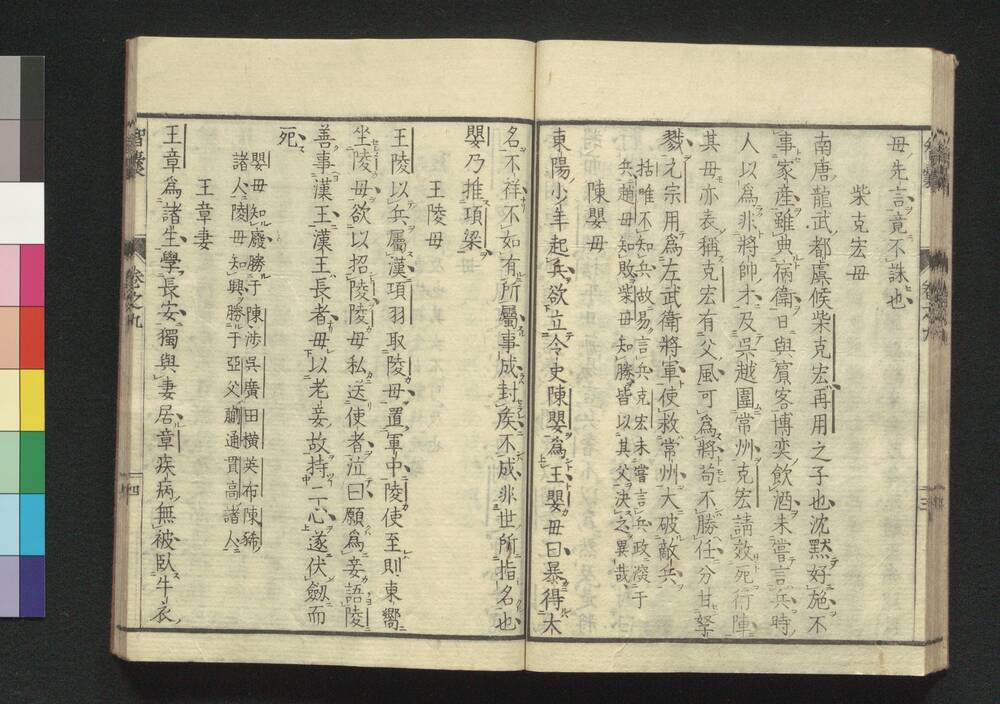 母先言竟不誅也
柴克宏母
南唐龍武都虞候柴克宏再用之子也沈默好施不
事家産雖典宿衛日與賓客博奕飲酒未嘗言兵時
人以爲非將帥才及吳越圍常州克宏請效死行陣
其母亦表稱克宏有父風可爲將苟不勝任分甘孥
戮元宗用爲左武衛將軍使救常州大破敵兵
括唯不知兵故易言兵克宏未嘗言兵政深于
兵趙母知敗柴母知勝皆以其父決之異哉
陳嬰母
東陽少年起兵欲立令史陳嬰爲王嬰母曰暴得大
名不祥不如有所屬事成封矦不成非世所指名也
嬰乃推項梁
王陵母
王陵以兵屬漢項羽取陵母置軍中陵使至則東嚮
坐陵母欲以招陵陵母私送使者泣曰願爲妾語陵
善事漢王漢王長者毋以老妾故持二心遂伏劔而
死
嬰母知廢勝于陳涉吳廣田橫英布陳豨
諸人陵母知興勝于亞父蒯通貫高諸人
王章妻
王章爲諸生學長安獨與妻居章疾病無被臥牛衣
智囊
卷之九
四
三